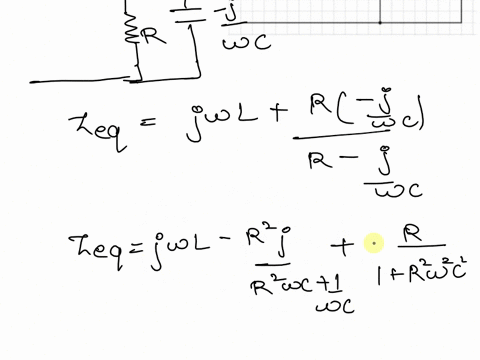 R -j/ωC
Zeq = jωL + R(-j/ωC) / R - j/ωC
Zeq = jωL - R²j / R²ωC + 1/ωC + R / 1+R²ω²C²